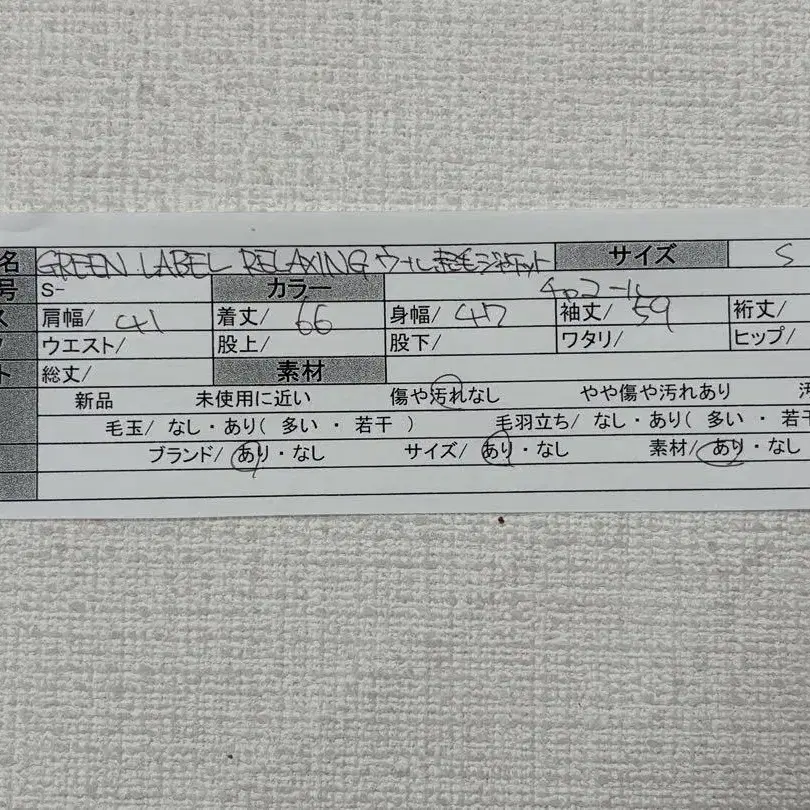 名 GREEN LABEL RELAXING ウール起毛ジャケット サイズ S
号 S- カラー チャコール
肩幅/ 41 着丈/ 66 身幅/ 47 袖丈/ 59 裄丈/
ウエスト/ 股上/ 股下/ ワタリ/ ヒップ/
ト 総丈/ 素材
新品 未使用に近い 傷や汚れなし やや傷や汚れあり 汚
毛玉/ なし・あり( 多い ・ 若干 ) 毛羽立ち/ なし・あり( 多い ・ 若干
ブランド/ あり・なし サイズ/ あり・なし 素材/ あり・なし